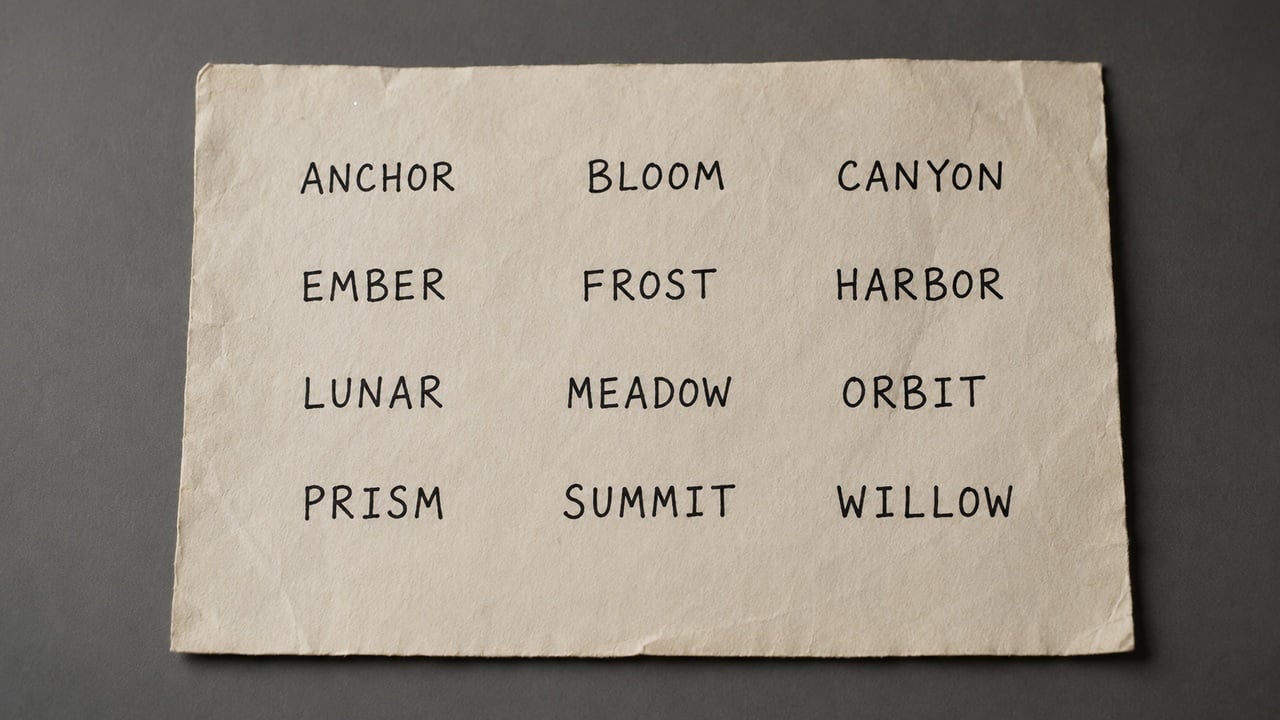 ANCHOR BLOOM CANYON
EMBER FROST HARBOR
LUNAR MEADOW ORBIT
PRISM SUMMIT WILLOW